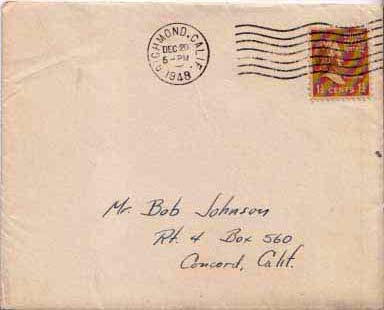 RICHMOND, CALIF.
DEC 20
5 - PM
1948
1½ CENTS 1½
Mr. Bob Johnson
Rt. 4 Box 560
Concord, Calif.